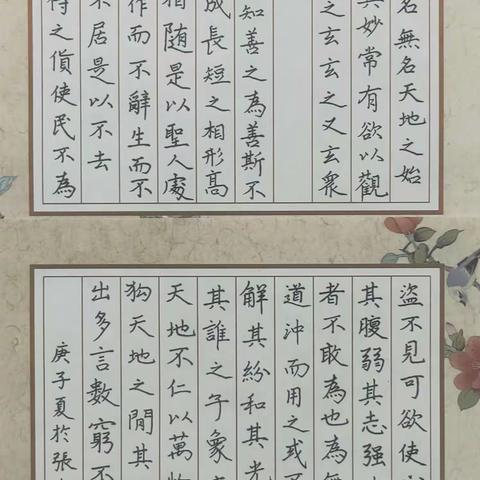 名無名天地之始
其妙常有欲以觀
之玄玄之又玄衆
知善之為善斯不
成長短之相形高
相随是以聖人處
作而不辭生而不
不居是以不去
得之貨使民不為
盜不見可欲使
其腹弱其志强
者不敢為也為無
道沖而用之或不
解其紛和其光
其誰之子象
天地不仁以萬物
狗天地之間其
出多言數窮不
庚子夏於張